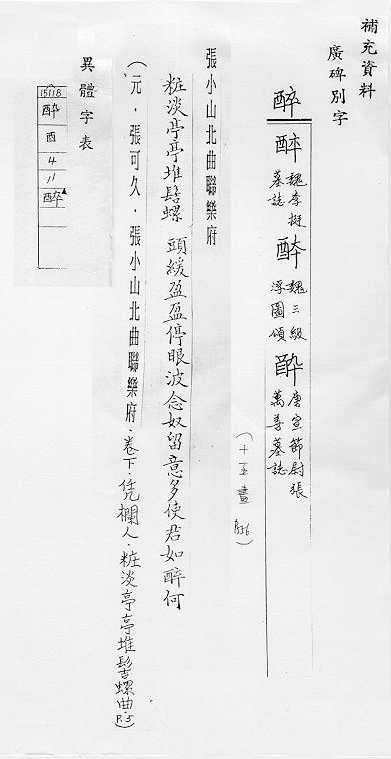 補充資料
廣碑別字
醉
醉 魏李挺墓誌 魏三級浮圖頌 唐宣節尉張萬善墓誌
(十五畫 P336)
張小山北曲聯樂府
粧淡亭亭堆髻螺 頭緩盈盈停眼波念奴留意多使君如醉何
(元．張可久．張小山北曲聯樂府．卷下．凭欄人．粧淡亭亭堆髻螺曲．P.5)
異體字表
1518
酔
酉
4
11
醉